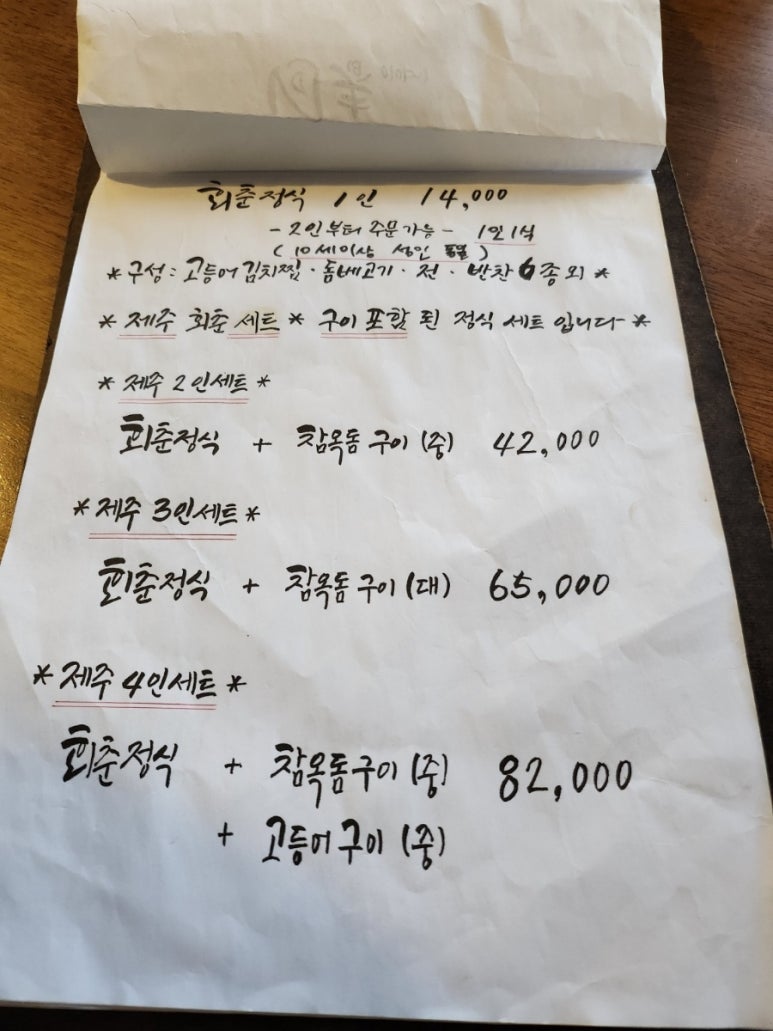 회춘정식 1인 14,000
- 2인부터 주문가능 - 1인1식
(10세이상 성인 )
* 구성: 고등어김치찜 · 돔베고기 · 전 · 반찬 6종 외 *
* 제주 회춘 세트 * 구이 포함 된 정식 세트 입니다 *
* 제주 2인세트 *
회춘정식 + 참옥돔 구이 (중) 42,000
* 제주 3인세트 *
회춘정식 + 참옥돔 구이 (대) 65,000
* 제주 4인세트 *
회춘정식 + 참옥돔구이 (중) 82,000
+ 고등어구이 (중)